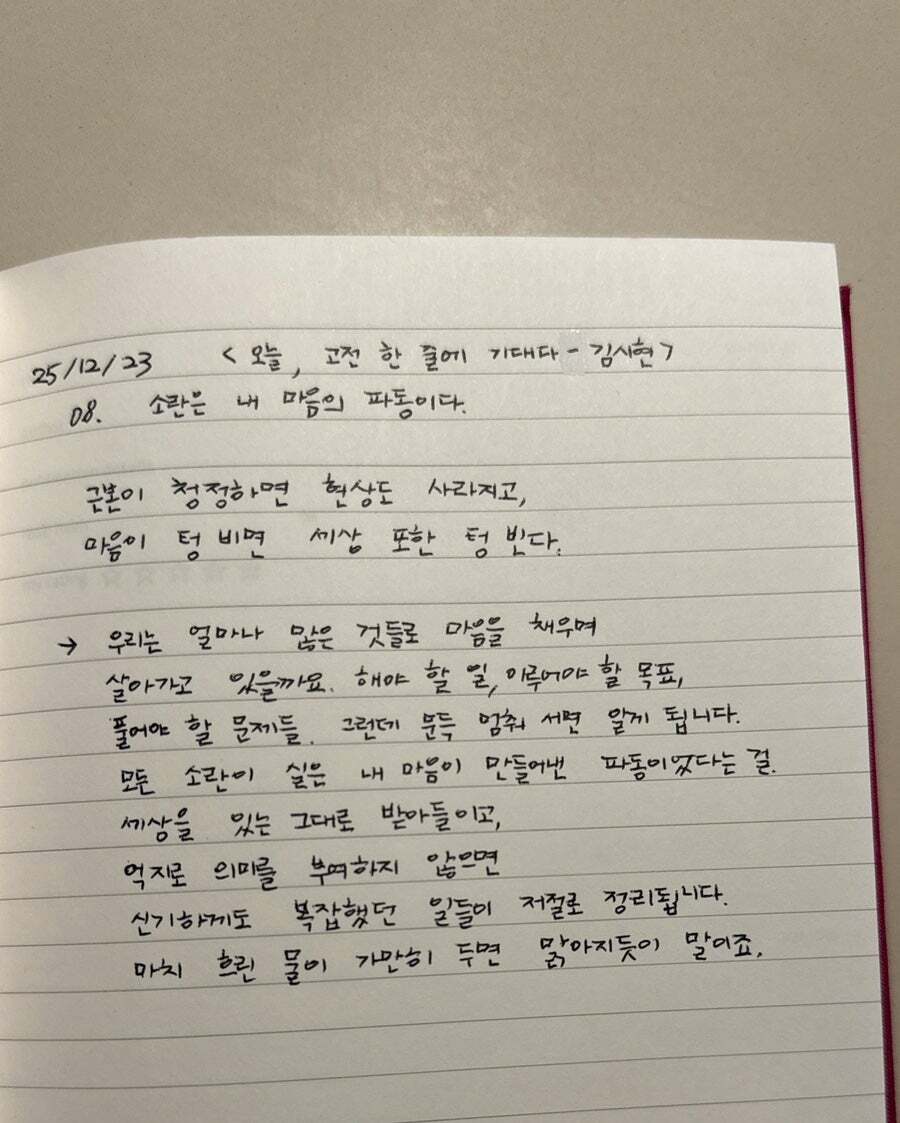 25/12/23 <오늘, 고전 한 줄에 기대다 - 김시현>
08. 소란은 내 마음의 파동이다.
근본이 청정하면 현상도 사라지고,
마음이 텅 비면 세상 또한 텅 빈다.
→ 우리는 얼마나 많은 것들로 마음을 채우며
살아가고 있을까요. 해야 할 일, 이루어야 할 목표,
풀어야 할 문제들. 그런데 문득 멈춰 서면 알게 됩니다.
모든 소란이 실은 내 마음이 만들어낸 파동이었다는 걸.
세상을 있는 그대로 받아들이고,
억지로 의미를 부여하지 않으면
신기하게도 복잡했던 일들이 저절로 정리됩니다.
마치 흐린 물이 가만히 두면 맑아지듯이 말이죠.